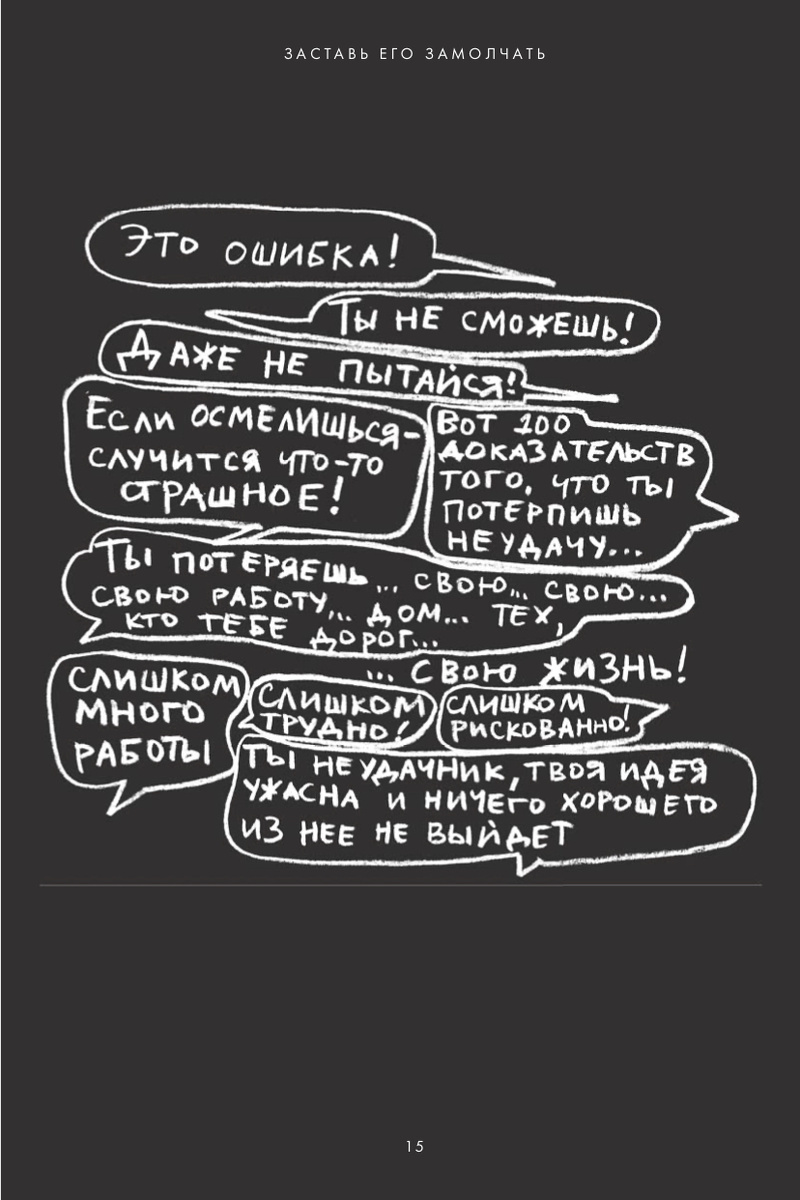 ЗАСТАВЬ ЕГО ЗАМОЛЧАТЬ
ЭТО ОШИБКА!
ТЫ НЕ СМОЖЕШЬ!
ДАЖЕ НЕ ПЫТАЙСЯ!
ЕСЛИ ОСМЕЛИШЬСЯ-
СЛУЧИТСЯ ЧТО-ТО
СТРАШНОЕ!
ВОТ 100
ДОКАЗАТЕЛЬСТВ
ТОГО, ЧТО ТЫ
ПОТЕРПИШЬ
НЕУДАЧУ...
ТЫ ПОТЕРЯЕШЬ... СВОЮ... СВОЮ...
СВОЮ РАБОТУ... ДОМ... ТЕХ,
КТО ТЕБЕ ДОРОГ...
... СВОЮ ЖИЗНЬ!
СЛИШКОМ
МНОГО
РАБОТЫ
СЛИШКОМ
ТРУДНО!
СЛИШКОМ
РИСКОВАННО!
ТЫ НЕУДАЧНИК, ТВОЯ ИДЕЯ
УЖАСНА И НИЧЕГО ХОРОШЕГО
ИЗ НЕЕ НЕ ВЫЙДЕТ
15